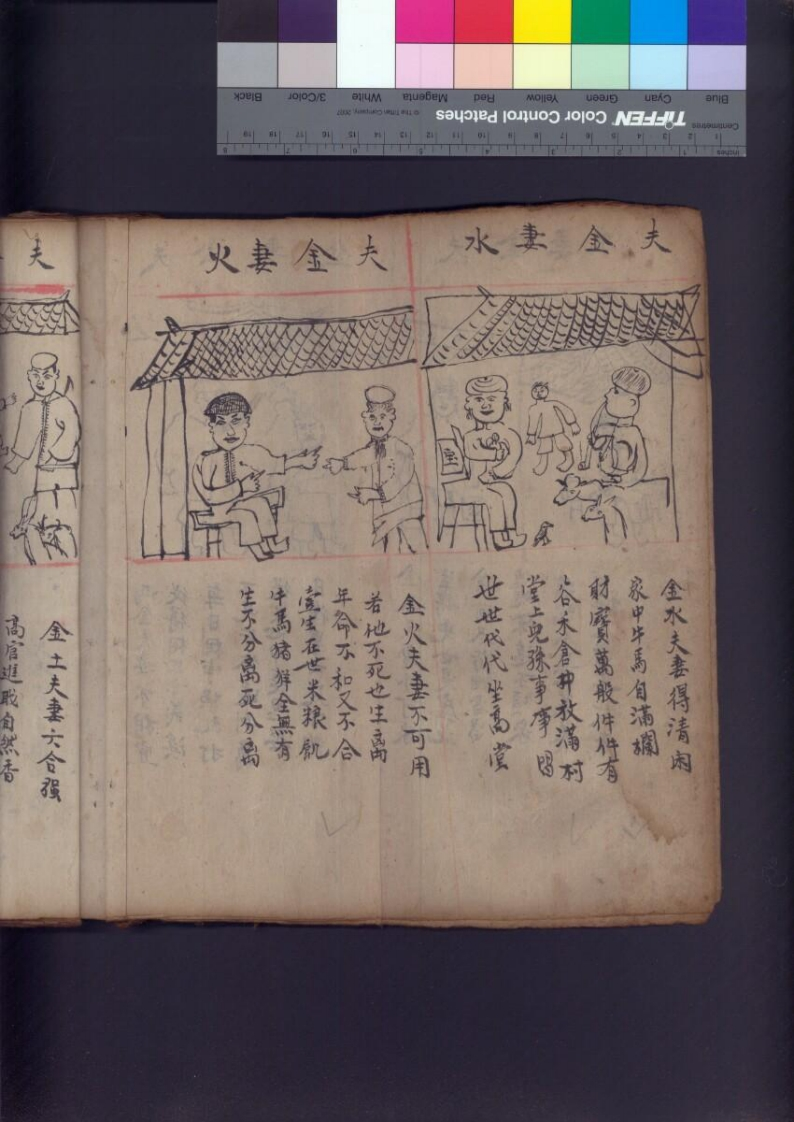 Blue
Cyan
Green
Yellow
Red
Magenta
White
3/Color
Black
TIFFEN Color Control Patches
© The Tiffen Company, 2007
Centimetres
Inches
夫金妻水
金水夫妻得清闲
家中牛馬自滿欄
財寳萬般件件有
谷禾倉中放滿村
堂上兒孫事事
世世代代坐高堂
夫金妻火
金火夫妻不可用
若他不死也生离
年命不和又不合
壹生在世米粮飢
牛馬猪羊全無有
生不分离死分离
夫
金土夫妻六合强
高官進職自然香